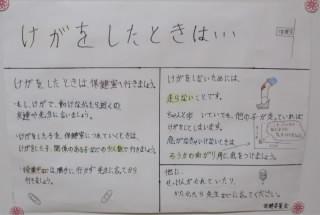 けがをしたときは…
保健室
けがをしたときは保健室へ行きましょう。
もし、けがで、動けなかったら近くの
友達や先生に言いましょう。
けがをした子を、保健室につれていくときは、
けがをした子、関係のある子などの少人数で行きましょう。
授業中は勝手に行かず先生に言ってから
行きましょう。
けがをしないためには、
走らないことです。
ちゃんと歩いていても、他の子が走っていれば
けがをしてしまいます。
ろうかの曲がり角に気をつけましょう。
他に、
せっけんがきれていたり、
先生などに言ってください。